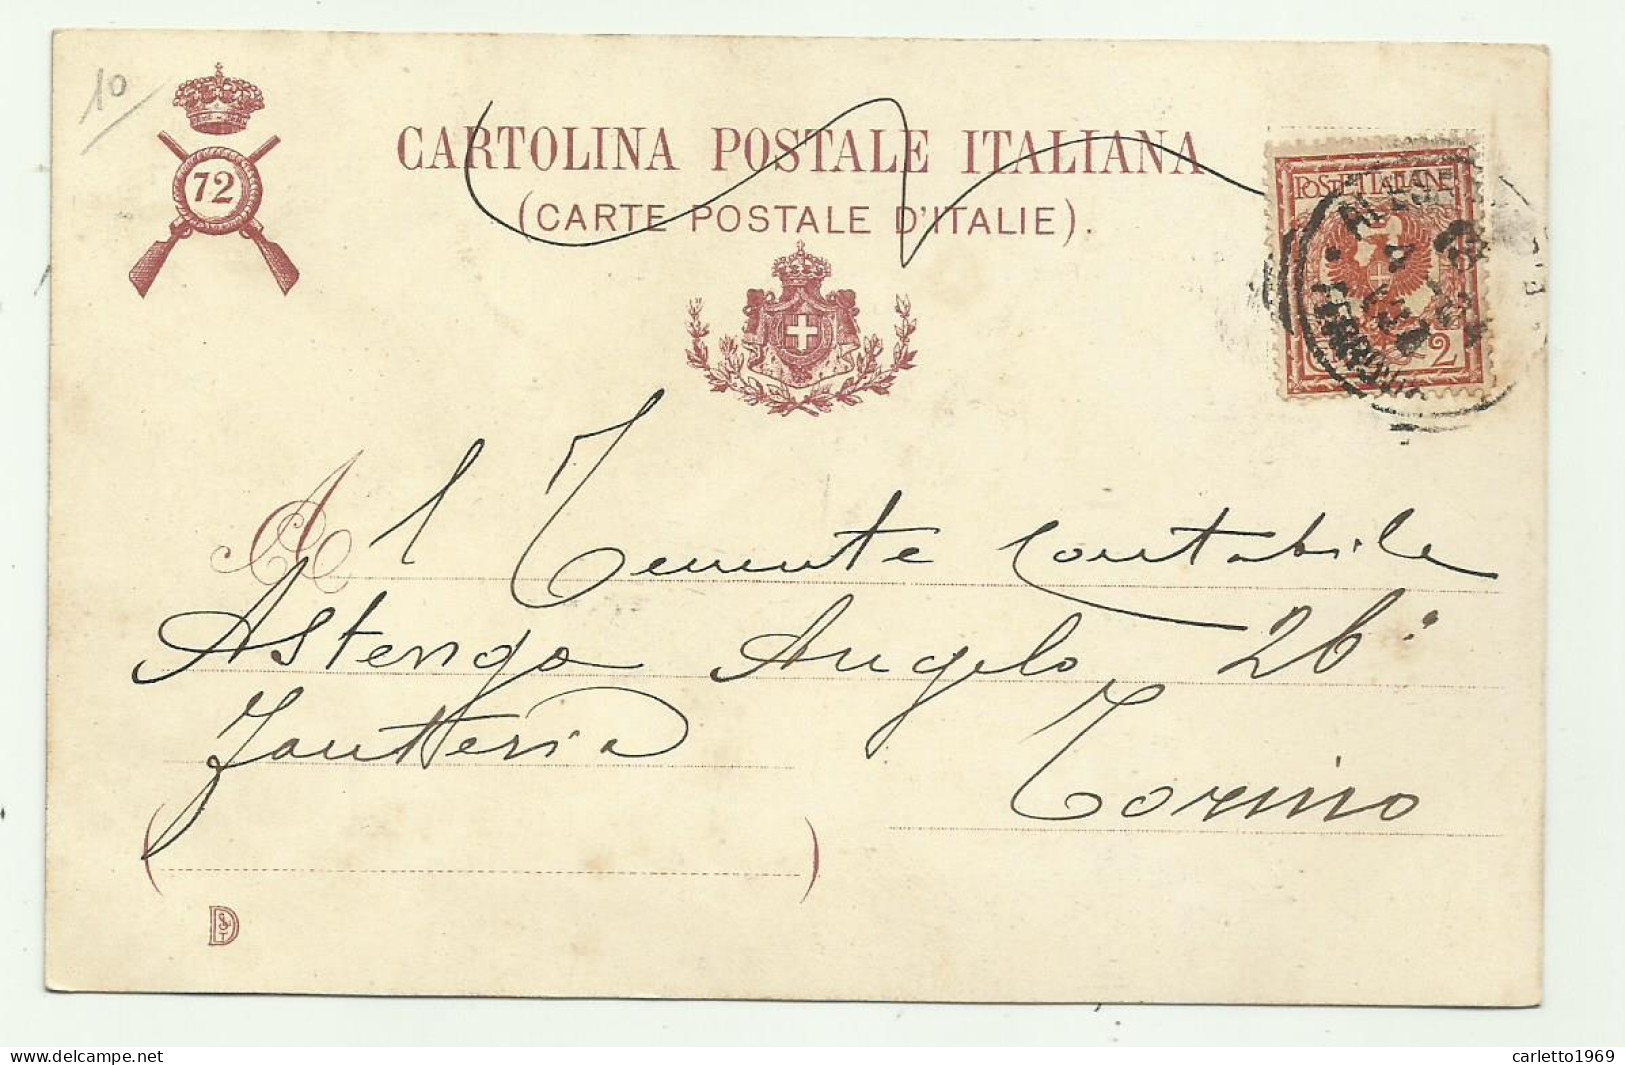 10
72
CARTOLINA POSTALE ITALIANA
(CARTE POSTALE D'ITALIE).
POSTE ITALIANE
2
Al Tenente Contabile
Astengo Angelo 26°
Fanteria
Torino
carletto1969
www.delcampe.net